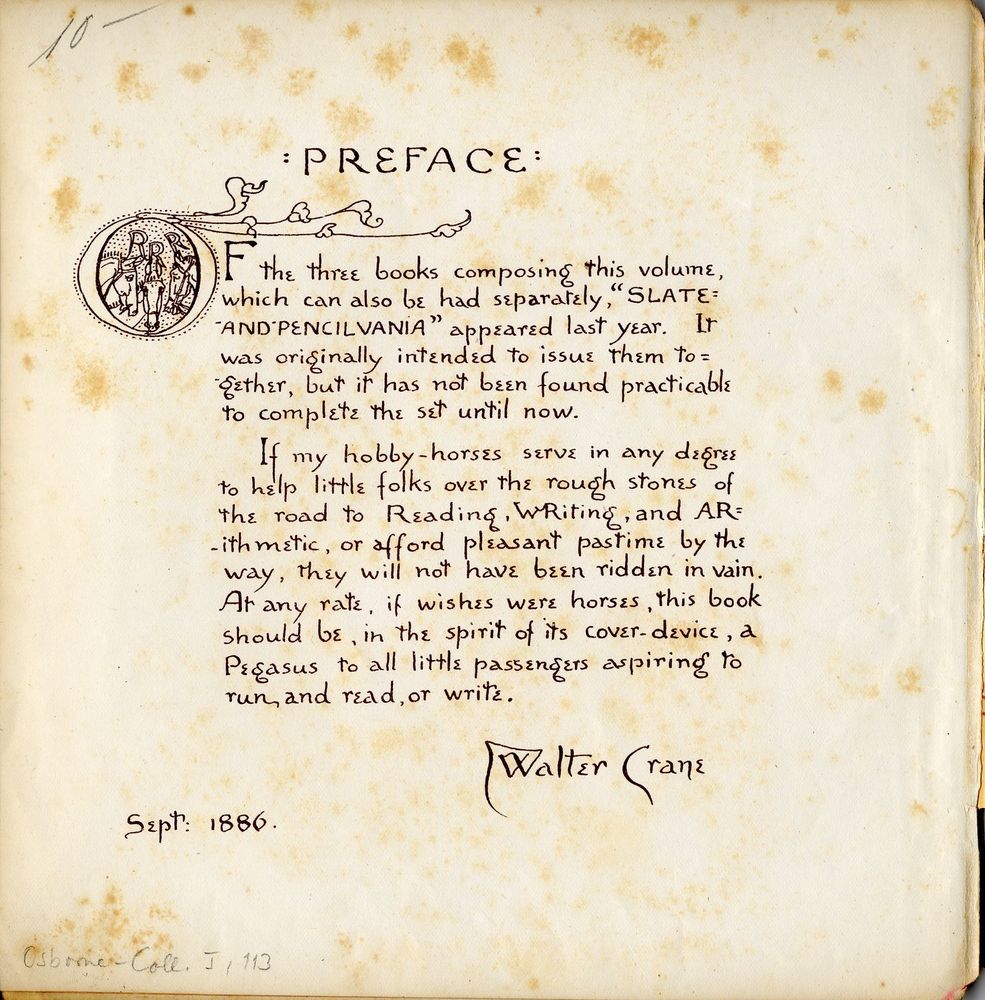 10 —
: PREFACE :
R R R
OF the three books composing this volume,
which can also be had separately, "SLATE=
-AND-PENCILVANIA" appeared last year. It
was originally intended to issue them to=
-gether, but it has not been found practicable
to complete the set until now.
If my hobby-horses serve in any degree
to help little folks over the rough stones of
the road to Reading, WRiting, and AR=
-ithmetic, or afford pleasant pastime by the
way, they will not have been ridden in vain.
At any rate, if wishes were horses, this book
should be, in the spirit of its cover-device, a
Pegasus to all little passengers aspiring to
run, and read, or write.
Walter Crane
Sept: 1886.
Osborne-Coll. I, 113